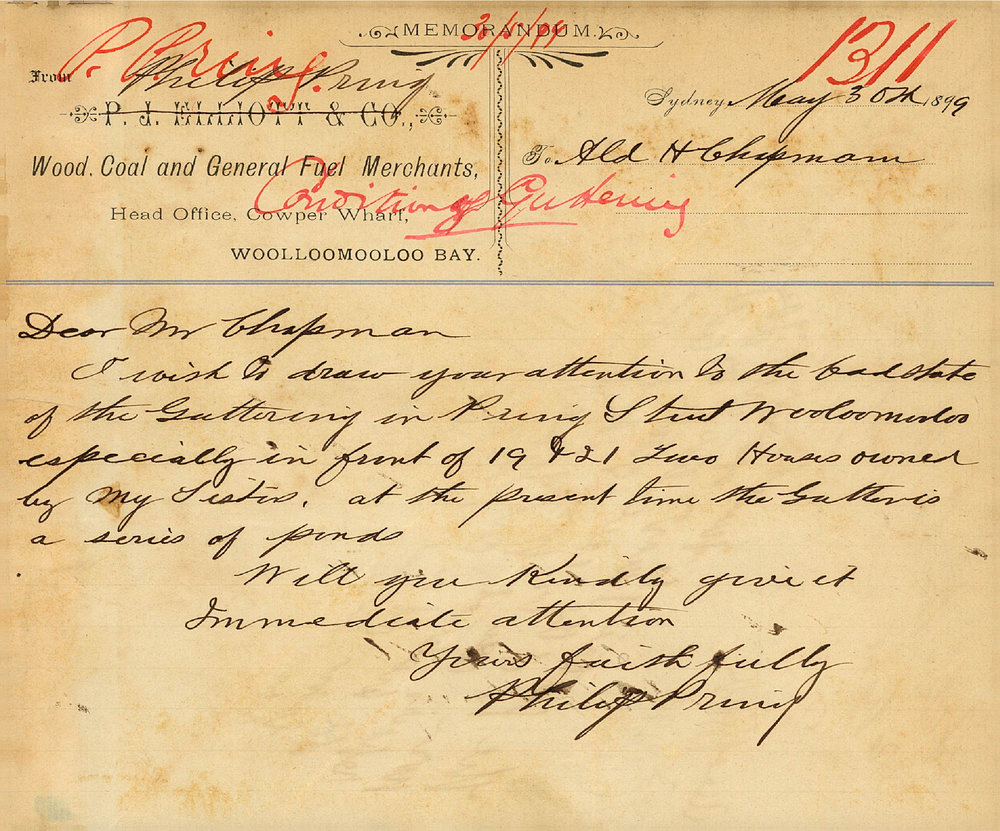 MEMORANDUM.
31/5/99
1311
P. Pring.
From Philip Pring
P. J. ELLIOTT & CO.,
Wood, Coal and General Fuel Merchants,
Head Office, Cowper Wharf,
WOOLLOOMOOLOO BAY.
Sydney, May 30th 1899
To Ald H Chapman
Condition of Guttering
Dear Mr Chapman
I wish to draw your attention to the bad state
of the Guttering in Pring Street Wooloomooloo
especially in front of 19 & 21 Two Houses owned
by My Sister. at the present time the Gutter is
a series of ponds
Will you Kindly give it
Immediate attention
Yours faithfully
Philip Pring